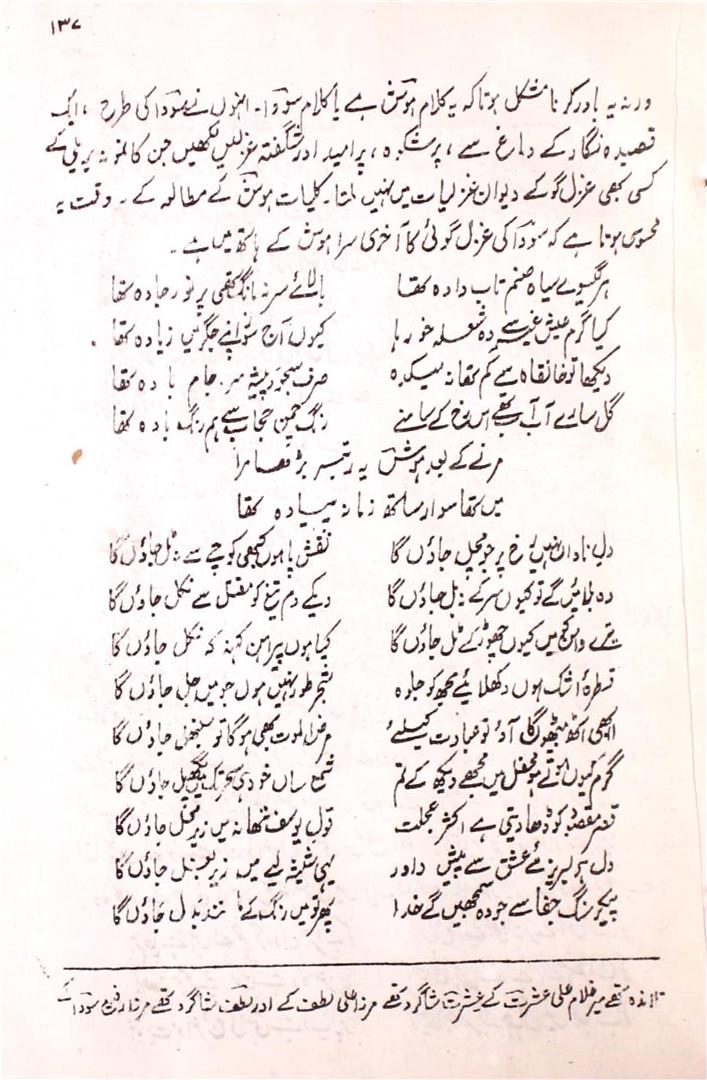 ۱۳۷
ورنہ یہ باور کرنا مشکل ہوتا کہ یہ کلام ہوش ہے یا کلام سودا۔ انہوں نے سودا کی طرح ، ایک
قصیدہ نگار کے دماغ سے ، پرشکوہ ، پرامید اور شگفتہ غزلیں لکھیں جن کا نمونہ بریلی کے
کسی بھی غزل گو کے دیوان غزلیات میں نہیں ملتا۔ کلیات ہوش کے مطالعہ کے وقت یہ
محسوس ہوتا ہے کہ سودا کی غزل گوئی کا آخری سرا ہوش کے ہاتھ میں ہے ۔
ہر گیسوے سیاہ صنم تاب دادہ تھا بالائے سر نہ مانگ تھی پر نور جادہ تھا
کیا گرم عیش غیر سے وہ شعلہ خو رہا کیوں آج سوز اپنے جگر میں زیادہ تھا
دیکھا تو خانقاہ سے کم تھا نہ میکدہ صرف سجود شیشہ سر جام بادہ تھا
گل سارے آب آب تھے اس رخ کے سامنے رنگ چمن حجاب سے ہم رنگ بادہ تھا
مرنے کے بعد ہوش یہ رتبہ بڑھا مرا
میں تھا سوار ساتھ زمانہ پیادہ تھا
دل ناداں نہیں رخ پر جو مچل جاؤں گا نقش پا ہوں کبھی کوچے سے نہ ٹل جاؤں گا
وہ بلائیں گے تو کیوں سر کے نہ بل جاؤں گا دیکے دم تیغ کو مقتل سے نکل جاؤں گا
تیرے وا میں کیوں چھوڑ کے ٹل جاؤں گا کیا ہوں پیراہن کہنہ کہ نکل جاؤں گا
قطرۂ اشک ہوں دکھلائیے مجھ کو جلوہ شجر طور نہیں ہوں جو میں جل جاؤں گا
ابھی اٹھ بیٹھوں گا آؤ تو عیادت کیلئے مرض الموت بھی ہوگا تو سنبھل جاؤں گا
گرم کیوں ہوتے ہو محفل میں مجھے دیکھ کے تم شمع ساں خود ہی سحر تک پگھل جاؤں گا
قصر مقصد کو ڈھا دیتی ہے اکثر عجلت قول یوسف تھا نہ میں زیر محل جاؤں گا
دل لبریز مئے عشق سے پیش داور یہی شیشہ لیے میں زیر بغل جاؤں گا
پیکر رنگ جفا سے جو وہ سمجھیں گے خدا پھر تو میں رنگ کے مانند بدل جاؤں گا
تلامذہ تھے میر غلام علی عشرت کے عشرت شاگرد تھے مرزا علی لطف کے اور لطف شاگرد تھے مرزا رفیع سودا کے